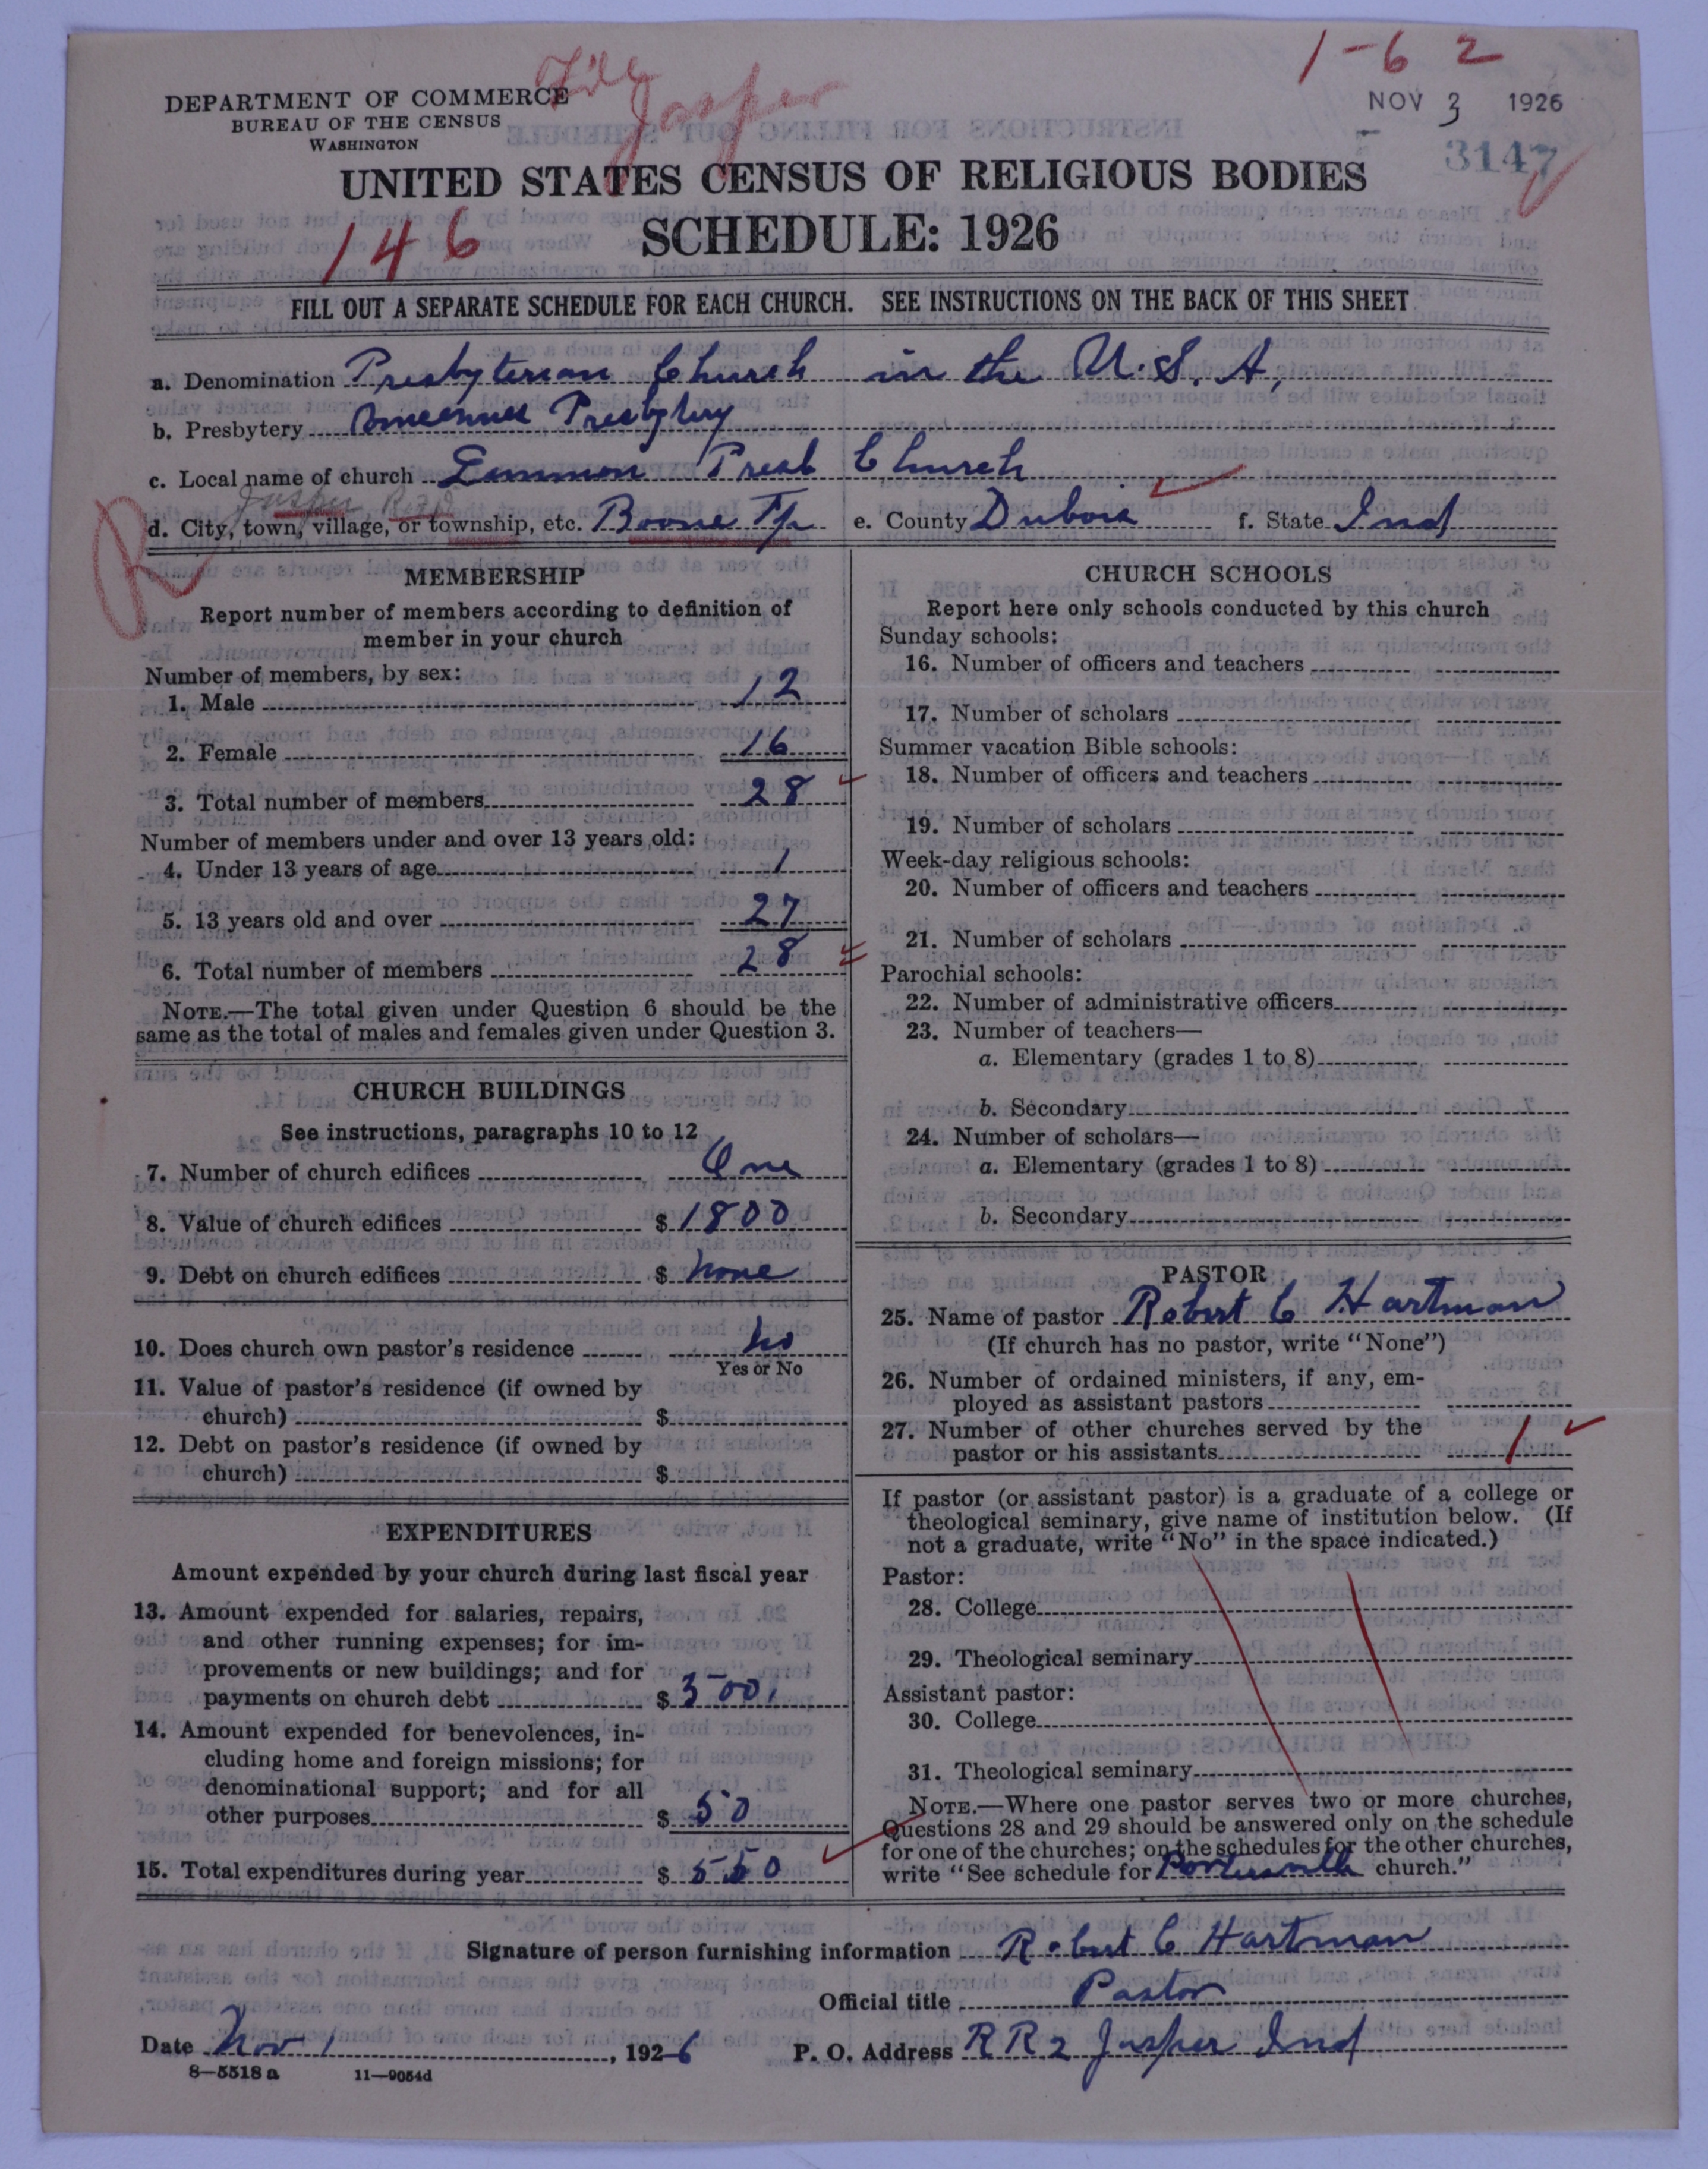 File Jasper
1-6 2
DEPARTMENT OF COMMERCE
BUREAU OF THE CENSUS
WASHINGTON
NOV 3 1926
3147
UNITED STATES CENSUS OF RELIGIOUS BODIES
146
SCHEDULE: 1926
FILL OUT A SEPARATE SCHEDULE FOR EACH CHURCH. SEE INSTRUCTIONS ON THE BACK OF THIS SHEET
a. Denomination Presbyterian Church in the U. S. A.
b. Presbytery Presbytery
c. Local name of church Presb Church
Jasper, R
d. City, town, village, or township, etc. Boone Tp e. County Dubois f. State Ind
R
MEMBERSHIP
Report number of members according to definition of
member in your church
Number of members, by sex:
1. Male 12
2. Female 16
3. Total number of members 28
Number of members under and over 13 years old:
4. Under 13 years of age 1
5. 13 years old and over 27
6. Total number of members 28
NOTE.—The total given under Question 6 should be the
same as the total of males and females given under Question 3.
CHURCH BUILDINGS
See instructions, paragraphs 10 to 12
7. Number of church edifices One
8. Value of church edifices $ 1800
9. Debt on church edifices $ none
10. Does church own pastor's residence no
Yes or No
11. Value of pastor's residence (if owned by
church) $
12. Debt on pastor's residence (if owned by
church) $
EXPENDITURES
Amount expended by your church during last fiscal year
13. Amount expended for salaries, repairs,
and other running expenses; for im-
provements or new buildings; and for
payments on church debt $ 500.
14. Amount expended for benevolences, in-
cluding home and foreign missions; for
denominational support; and for all
other purposes $ 50
15. Total expenditures during year $ 550
CHURCH SCHOOLS
Report here only schools conducted by this church
Sunday schools:
16. Number of officers and teachers
17. Number of scholars
Summer vacation Bible schools:
18. Number of officers and teachers
19. Number of scholars
Week-day religious schools:
20. Number of officers and teachers
21. Number of scholars
Parochial schools:
22. Number of administrative officers
23. Number of teachers—
a. Elementary (grades 1 to 8)
b. Secondary
24. Number of scholars—
a. Elementary (grades 1 to 8)
b. Secondary
PASTOR
25. Name of pastor Robert C Hartman
(If church has no pastor, write "None")
26. Number of ordained ministers, if any, em-
ployed as assistant pastors
27. Number of other churches served by the
pastor or his assistants 1
If pastor (or assistant pastor) is a graduate of a college or
theological seminary, give name of institution below. (If
not a graduate, write "No" in the space indicated.)
Pastor:
28. College
29. Theological seminary
Assistant pastor:
30. College
31. Theological seminary
NOTE.—Where one pastor serves two or more churches,
Questions 28 and 29 should be answered only on the schedule
for one of the churches; on the schedules for the other churches,
write "See schedule for church."
Signature of person furnishing information Robert C Hartman
Official title Pastor
Date Nov 1, 1926 P. O. Address RR 2 Jasper Ind
8—5518 a 11—9054d